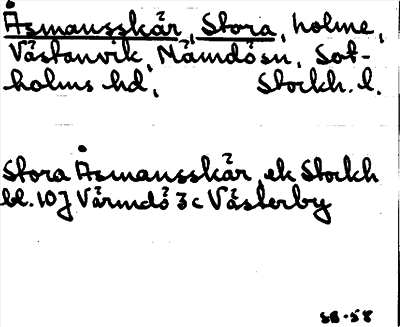 Åsmansskär, Stora, holme,
Västanvik, Nämdö sn, Sot-
holms hd, Stockh. l.
Stora Åsmansskär ek Stockh
bl. 10 J Värmdö 3 c Västerby
SB-58